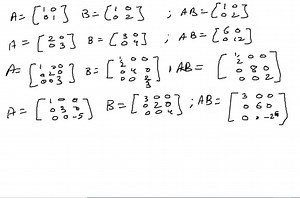 A = [1 0 0 1] B = [1 0 0 2] ; AB = [1 0 0 2]
A = [2 0 0 3] B = [3 0 0 4] ; AB = [6 0 0 12]
A = [1 0 0 0 2 0 0 0 3] B = [1/2 0 0 0 4 0 0 0 2/3] ; AB = [1/2 0 0 0 8 0 0 0 2]
A = [1 0 0 0 3 0 0 0 -5] B = [3 0 0 0 2 0 0 0 4] ; AB = [3 0 0 0 6 0 0 0 -20]